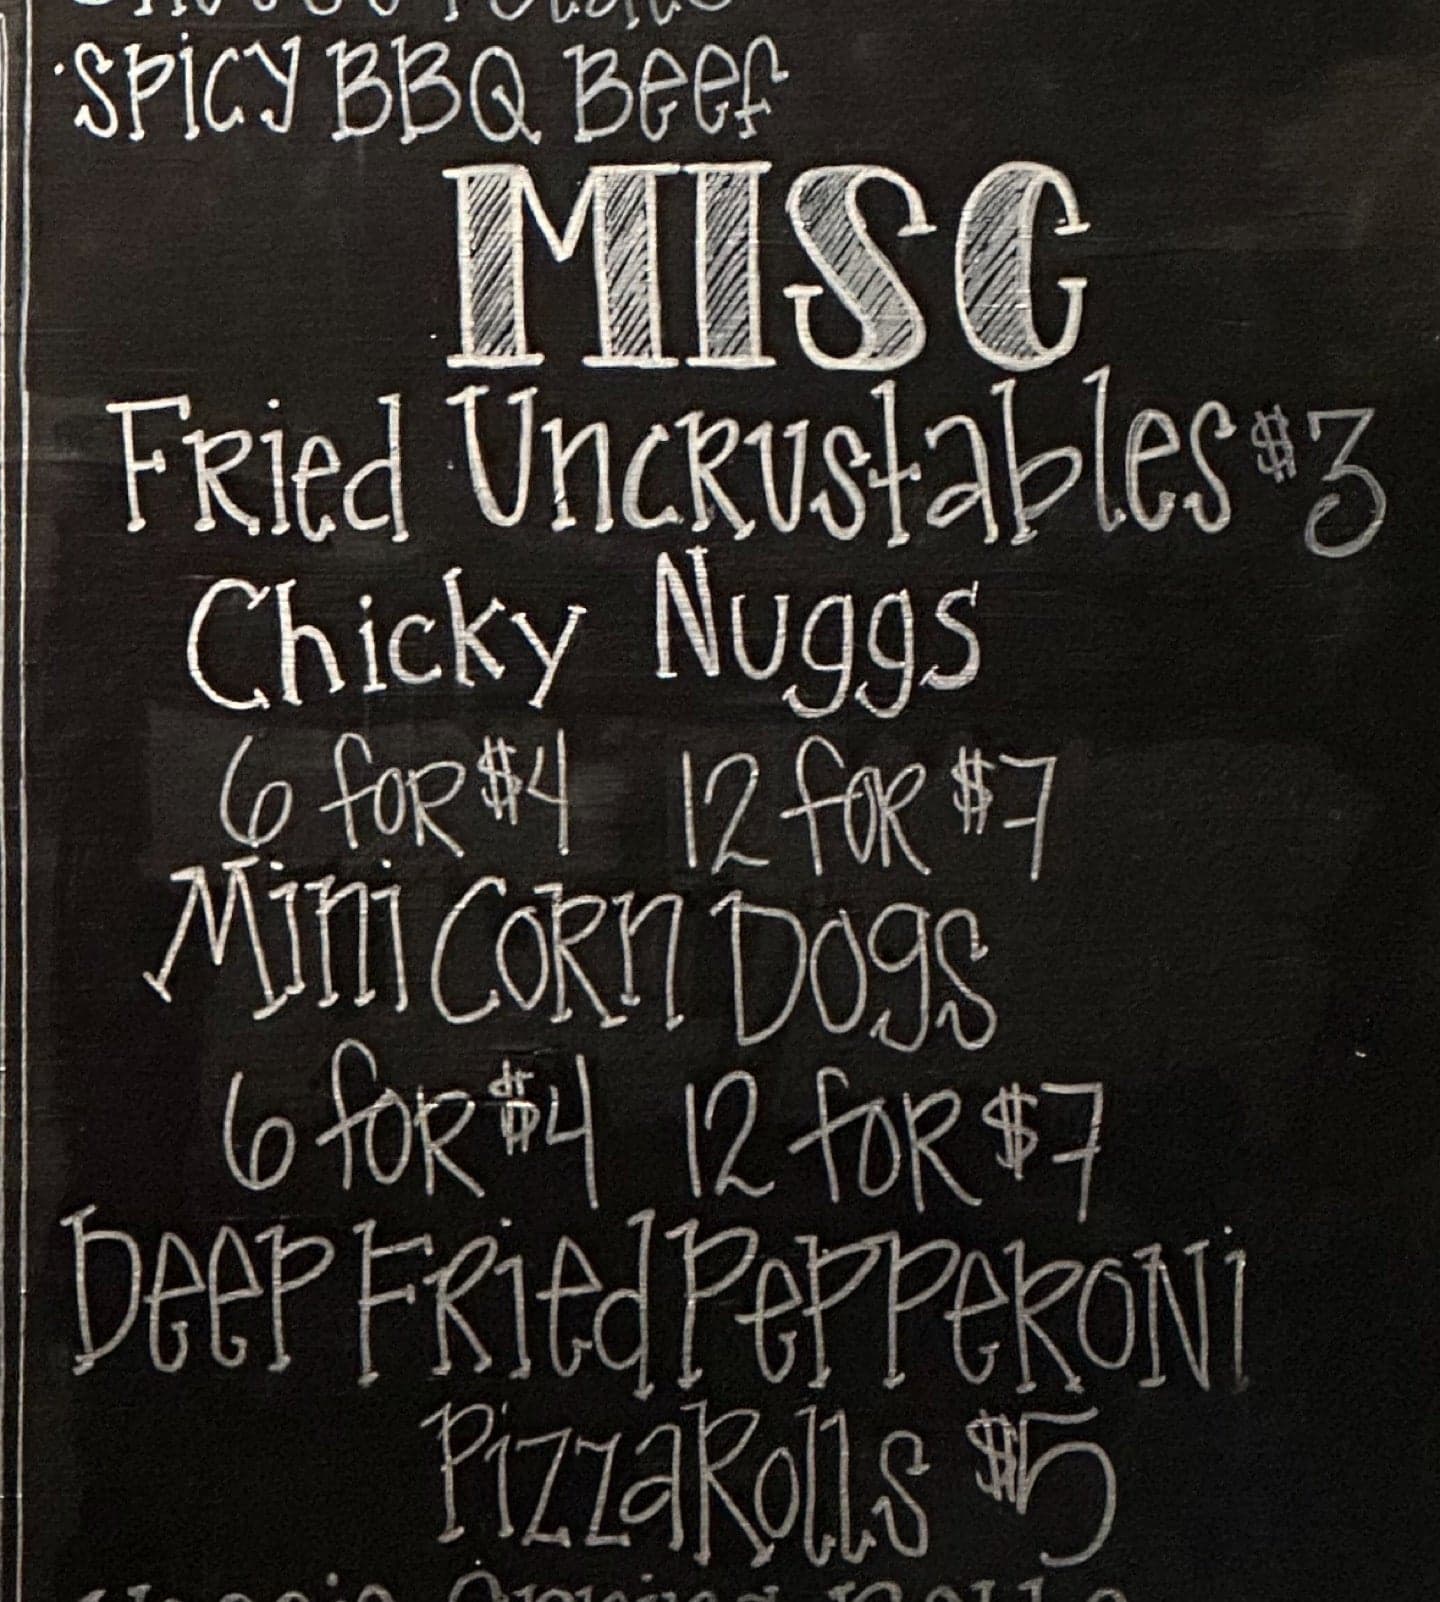 ·Spicy BBQ Beef
MISC
Fried Uncrustables $3
Chicky Nuggs
6 for $4 12 for $7
Mini Corn Dogs
6 for $4 12 for $7
Deep Fried Pepperoni
Pizza Rolls $5